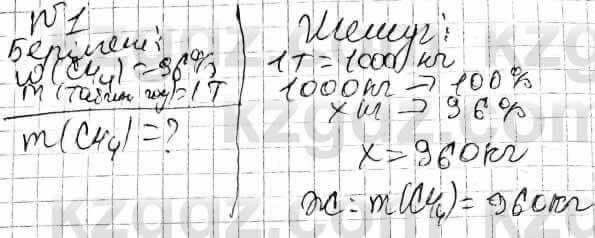 №1
Берілгені:
ω(CH₄)=96%
m(табиғи газ)=1Т
m(CH₄)=?
Шешуі:
1Т=1000 кг
1000кг→100%
x кг→96%
x=960кг
ж: m(CH₄)=960кг